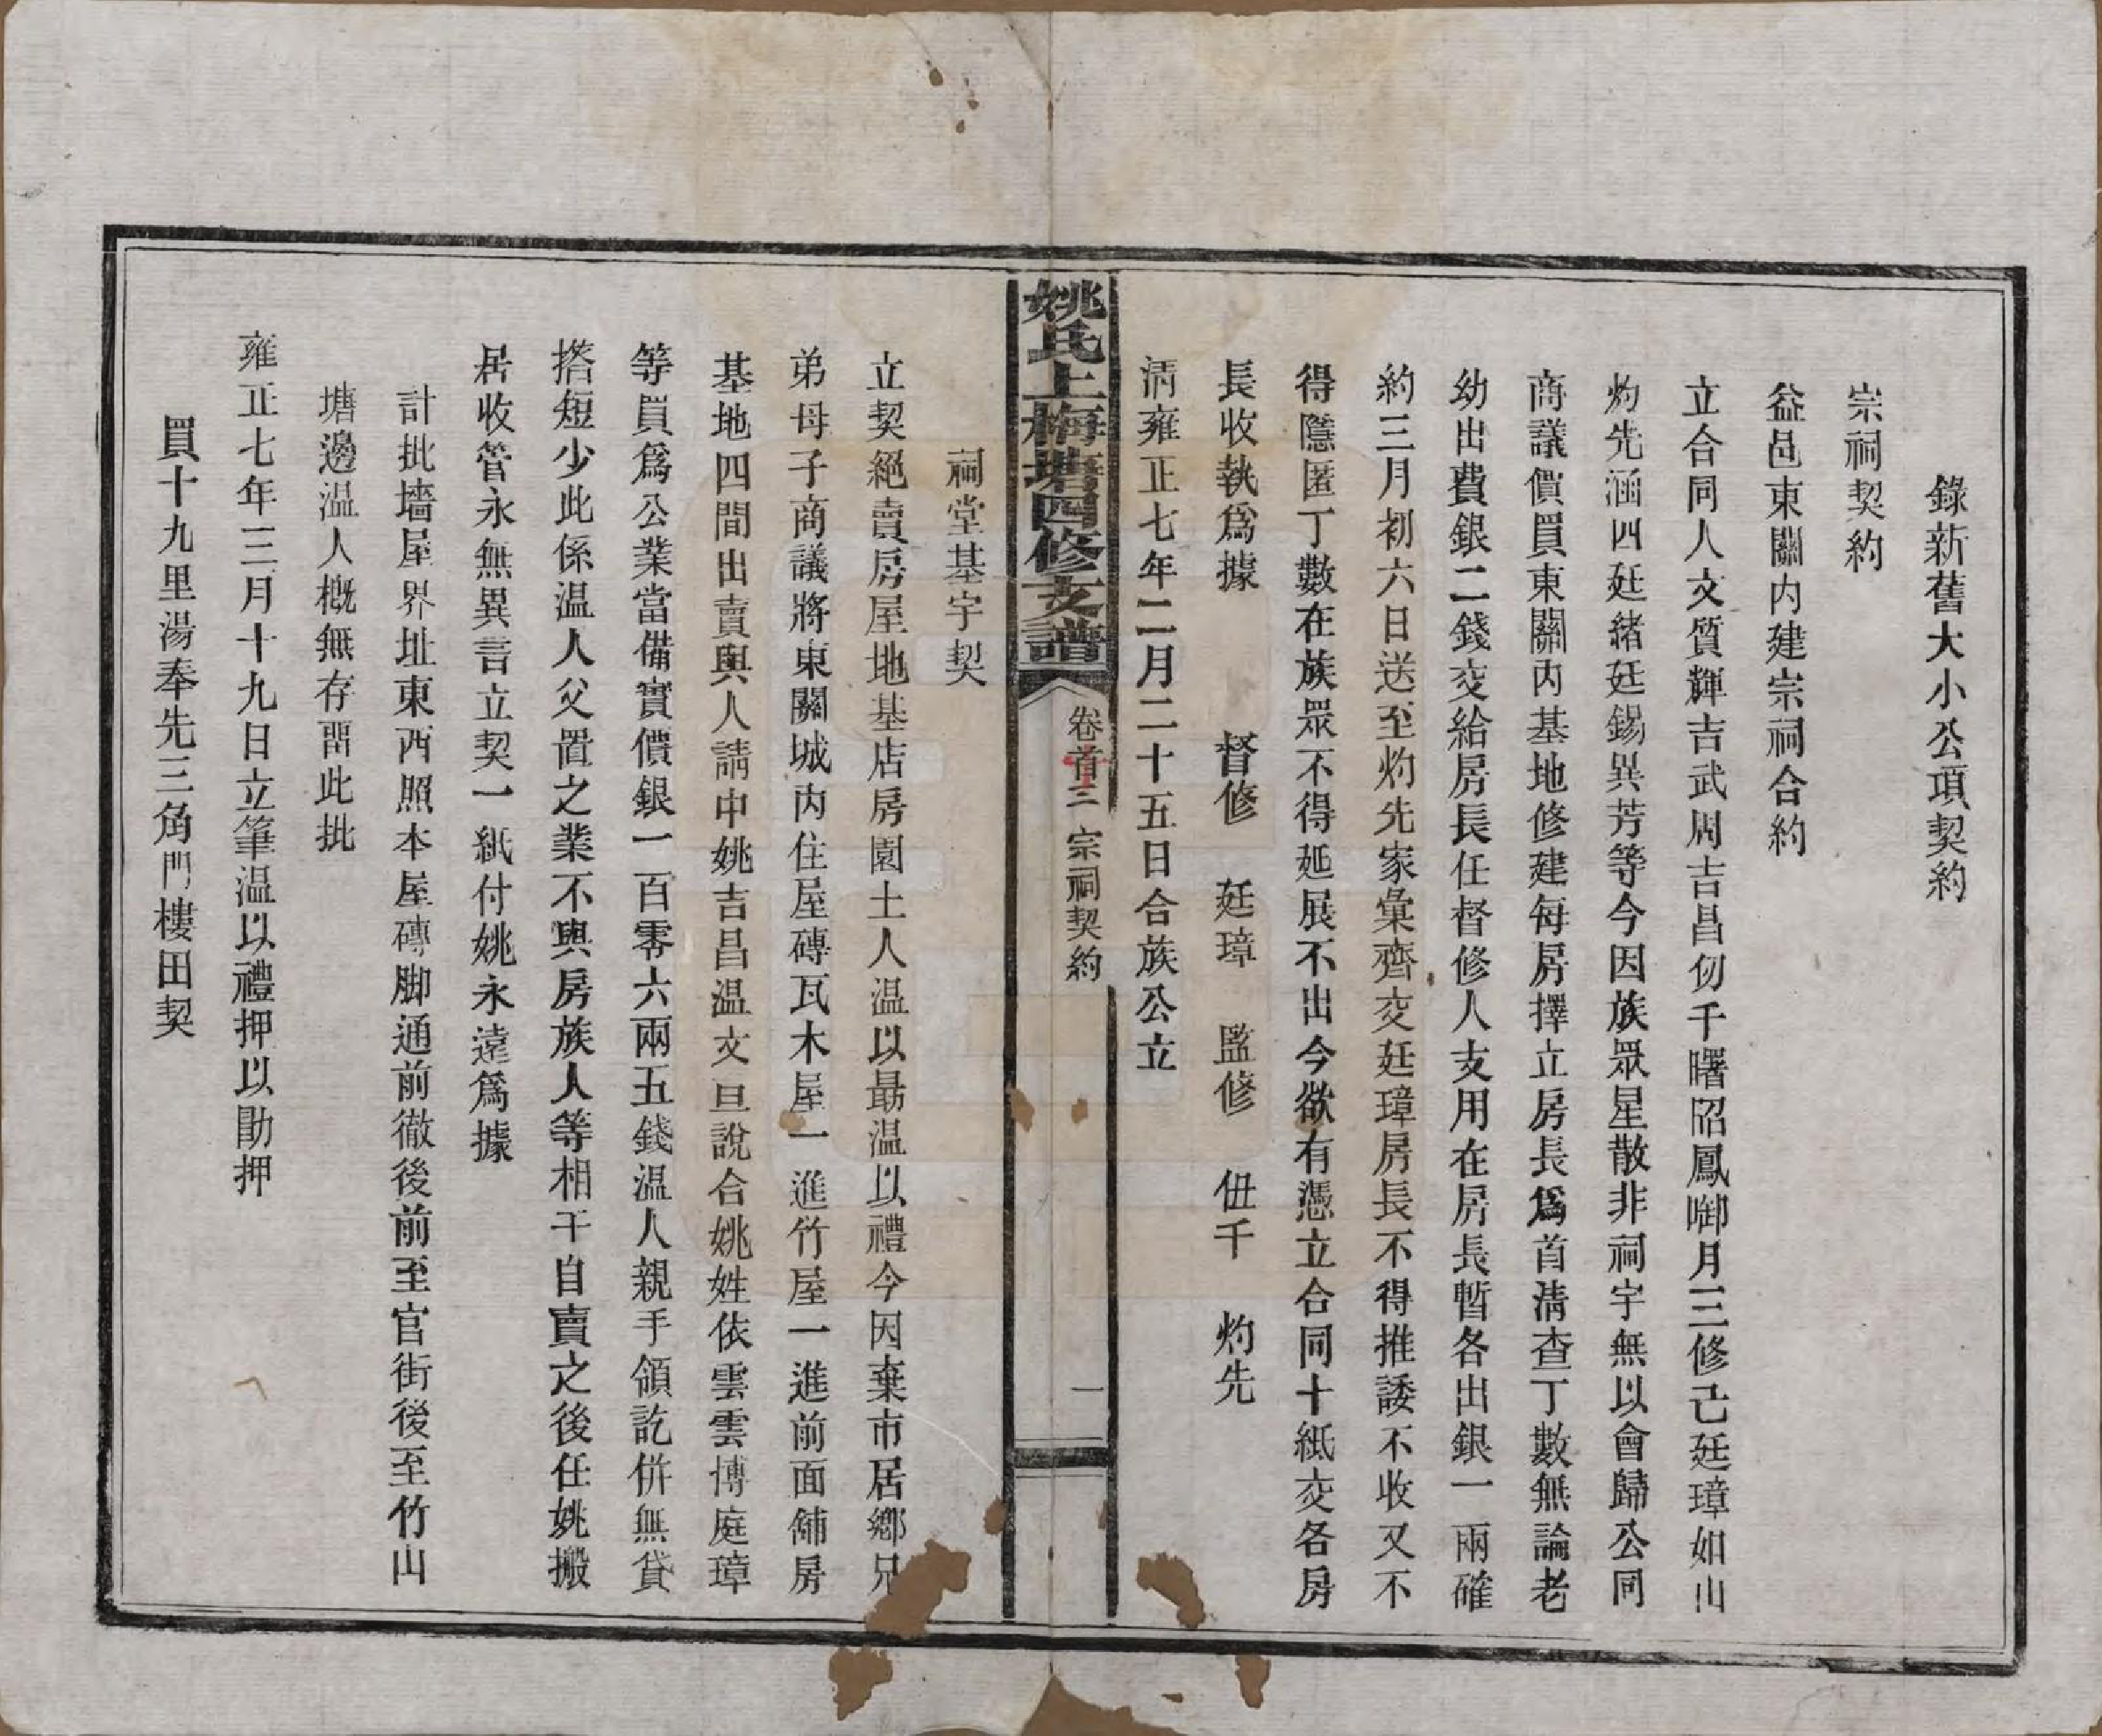 錄新舊大小公項契約
宗祠契約
益邑東關内建宗祠合約
立合同人文質輝吉武周吉昌仞千曙昭鳳啣月三修己廷璋如山
灼先涵四廷緒廷錫異芳等今因族眾星散非祠宇無以會歸公同
商議價買東關内基地修建每房擇立房長爲首清查丁數無論老
幼出費銀二錢交給房長任督修人支用在房長暫各出銀一兩確
約三月初六日送至灼先家彙齊交廷璋房長不得推諉不收又不
得隱匿丁數在族眾不得延展不出今欲有憑立合同十紙交各房
長收執爲據　督修　廷璋　監修　伹千　灼先
清雍正七年二月二十五日合族公立
姚氏上梅塘四修支譜　卷首二　宗祠契約　一
祠堂基宇契
立契絕賣房屋地基店房園土人温以勗温以禮今因棄市居鄉兄
弟母子商議將東關城内住屋磚瓦木屋一進竹屋一進前面舖房
基地四間出賣與人請中姚吉昌温文旦說合姚姓依雲雲博庭璋
等買爲公業當備實價銀一百零六兩五錢温人親手領訖併無貸
搭短少此係温人父置之業不與房族人等相干自賣之後任姚搬
居收管永無異言立契一紙付姚永遠爲據
計批墻屋界址東西照本屋磚脚通前徹後前至官街後至竹山
塘邊温人概無存畱此批
雍正七年三月十九日立筆温以禮押以勗押
買十九里湯奉先三角門樓田契